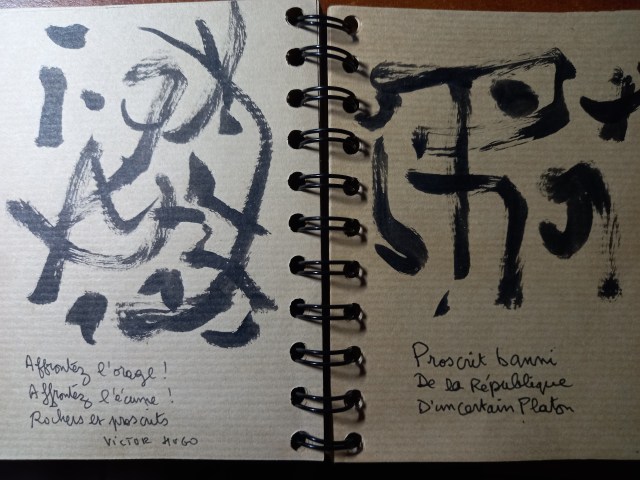 Affrontez l'orage !
Affrontez l'écume !
Rochers et proscrits
VICTOR HUGO
Proscrit banni
De la République
D'un certain Platon